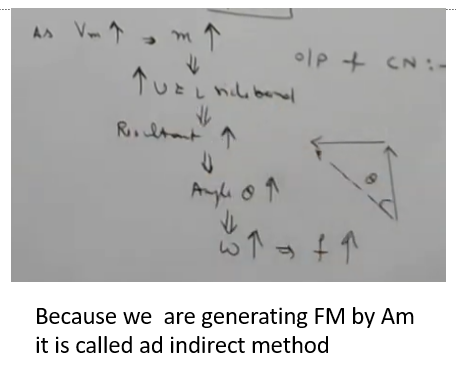 As Vm ↑ → m ↑
O/P + CN :-
⇓
↑ U & L sideband
⇓
Resultant ↑
⇓
Angle θ ↑
θ
⇓
ω ↑ ⇒ f ↑
Because we are generating FM by Am
it is called ad indirect method